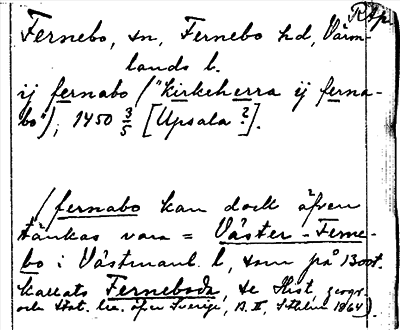 Rtp.
Fernebo, sn, Fernebo hd, Värm-
lands l.
ij fernabo ("Kirkeherra ij ferna-
bo"), 1450 3/5 [Upsala ?].
/fernabo kan dock äfven
tänkas vara = Väster-Ferne-
bo i Västmanl. l, som på 1300t.
kallats Ferneboda, se Hist. geogr.
och stat. lex. öfver Sverige, B. II, Sthlm 1864).